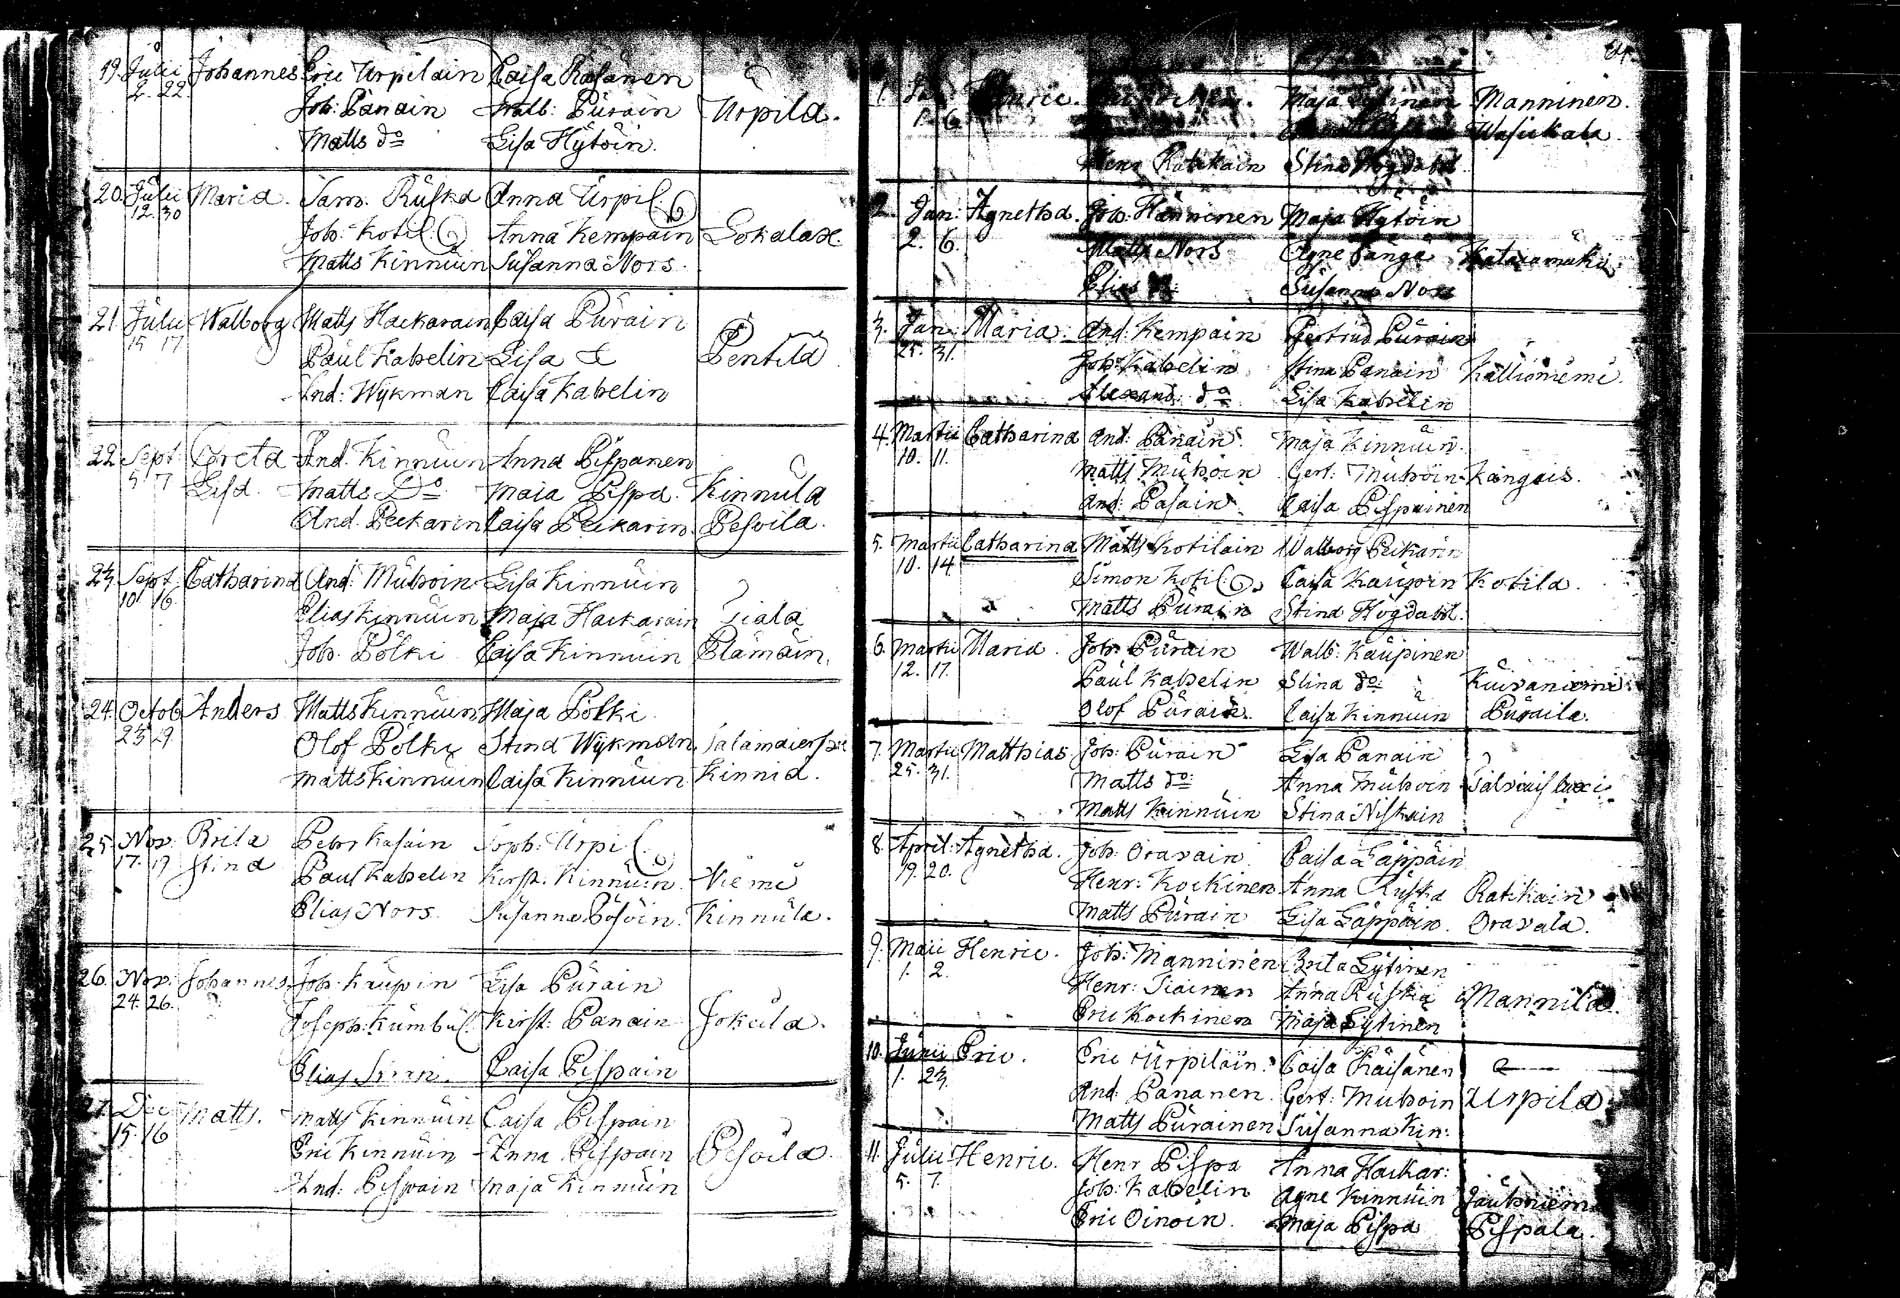 19. Julii Johannes Eric Urpilain Caisa Räisänen
2. 22. Joh: Panain Walb: Purain Urpila.
Matts do Lisa Hytöin.
20. Julii Maria. Sam. Ruska Anna Urpil.
12. 30 Joh: Kotil. Anna Kempain Lokalax.
Matts Kinnuin Susanna Nors.
21. Julii Walborg Matts Hackarain Caisa Purain
15 17 Paul Kahelin Lisa Pentilä
And: Wykman Caisa Kahelin
22. Sept Greta And. Kinnuin Anna Pispanen
5 7 Lisa. Matts Do Maja Pispa. Kinnula
And. Peckarin Caisa Peckarin. Pesoila.
23. Sept. Catharina And: Muhoin Lisa Kinnuin
10 16 Elias Kinnuin Maja Hackarain Tiala
Joh. Pölki Caisa Kinnuin
24. Octob Anders Matts Kinnuin Maja Pölki
23 29. Olof Pölki Stina Wykman
Matts Kinnuin Caisa Kinnuin Kinnia.
25. Nov Brita Petr Kasain Soph: Urpil.
17. 19 Stina Paul Kahelin Kirst. Kinnuin. Niemi
Elias Nors. Susanna Pösöin. Kinnula.
26. Nov. Johannes Joh: Kaupin Lisa Purain
24. 26. Joseph: Kumbul. Kirst: Panain Jokeila.
Elias Caisa Pispain
27. Dec Matts. Matts Kinnuin Caisa Pispain
15. 16 Eric Kinnuin Anna Pispain Pesoila.
And: Pispain Maja Kinnuin
1. Henric. Maja Lytinen Manninen.
1. 6. Wasikala
Henr Ratikain Stina Hogdahl.
2. Jan: Agnetha. Joh: Hänninen Maja Hytöin
2. 6. Matts Nors Agne Pänge Katajamäki
Elias Susanna Nors
3. Jan. Maria. And. Kempain Gertrud Purain
25. 31. Joh: Kahelin Stina Panain Kallioniemi.
Alexand. do Lisa Kahelin
4. Martii Catharina And: Panain. Maja Kinnuin.
10. 11. Matts Muhoin Gert: Muhoin Kangais.
And: Pasain Caisa Pispainen
5. Martii Catharina Matts Kotilain Walborg Peckarin
10. 14 Simon Kotil. Caisa Kaupoin Kotila.
Matts Purain Stina Hogdahl.
6. Martii Maria. Joh: Purain Walb: Kaupinen
12. 17. Paul Kahelin Stina do: Kuivaniemi
Olof Purain. Caisa Kinnuin Puraila.
7. Martii Matthias Joh: Purain Lisa Panain
25. 31. Matts do: Anna Muhoin
Matts Kinnuin Stina Niskain
8. April: Agnetha. Joh: Oravain. Caisa Läppäin
19. 20. Henr: Kockinen Anna Ruska Ratikain
Matts Purain Lisa Läppäin. Oravala.
9. Maii Henric. Joh: Manninen Brita Lytinen
1. 2. Henr: Tiainen Anna Ruska Mannila.
Eric Kockinen Maja Lytinen
10. Junii Eric. Eric Urpilain. Caisa Räisänen
1. 23. And: Pananen. Gert: Muhoin Urpila
Matts Purainen Susanna Kin:
11. Julii Henric. Henr Pispa Anna Hackar:
5. 7. Joh: Kahelin Agne Kinnuin Jauhniemi
Eric Oinoin. Maja Pispa Pispala.